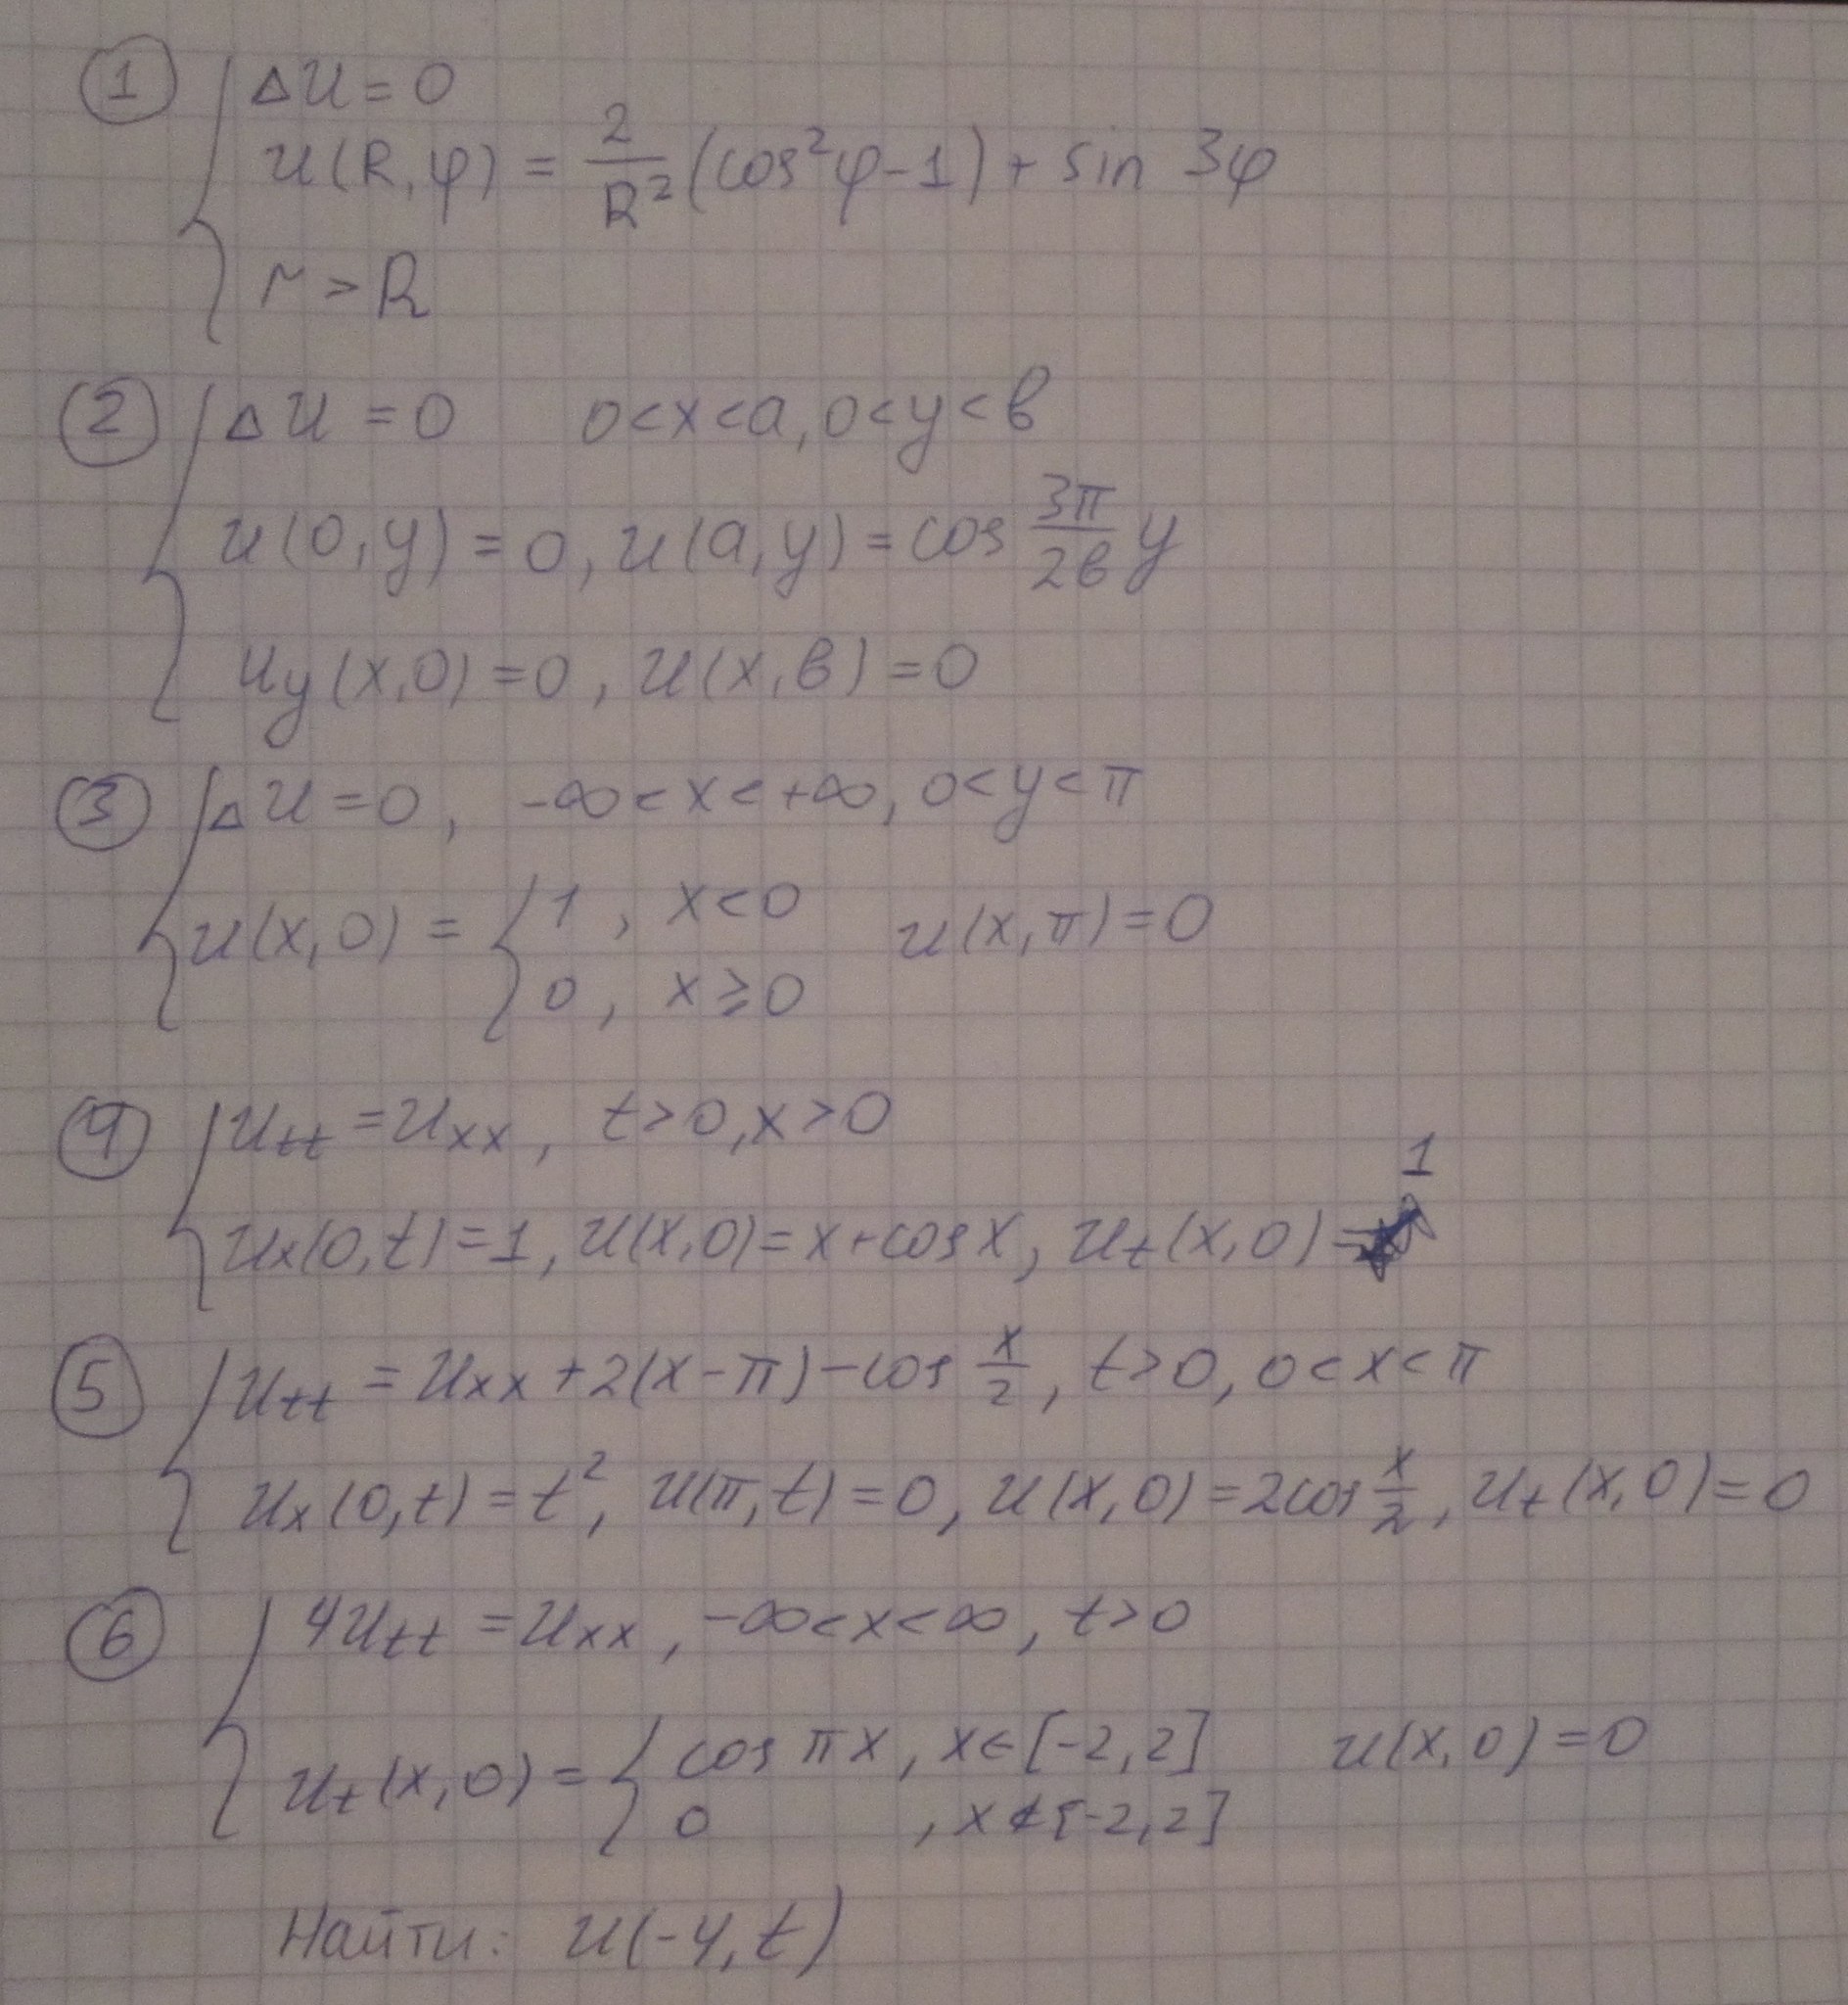 ① Δu = 0
u(R, φ) = 2/R² (cos²φ - 1) + sin 3φ
r > R
② Δu = 0 0 < x < a, 0 < y < b
u(0, y) = 0, u(a, y) = cos 3π/2b y
u_y(x, 0) = 0, u(x, b) = 0
③ Δu = 0, -∞ < x < +∞, 0 < y < π
u(x, 0) = { 1, x < 0 u(x, π) = 0
0, x ≥ 0
④ u_tt = u_xx, t > 0, x > 0
u_x(0, t) = 1, u(x, 0) = x + cos x, u_t(x, 0) = 1
⑤ u_tt = u_xx + 2(x - π) - cos x/2, t > 0, 0 < x < π
u_x(0, t) = t², u(π, t) = 0, u(x, 0) = 2cos x/2, u_t(x, 0) = 0
⑥ 4u_tt = u_xx, -∞ < x < ∞, t > 0
u_t(x, 0) = { cos πx, x ∈ [-2, 2] u(x, 0) = 0
0, x ∉ [-2, 2]
Найти: u(-4, t)